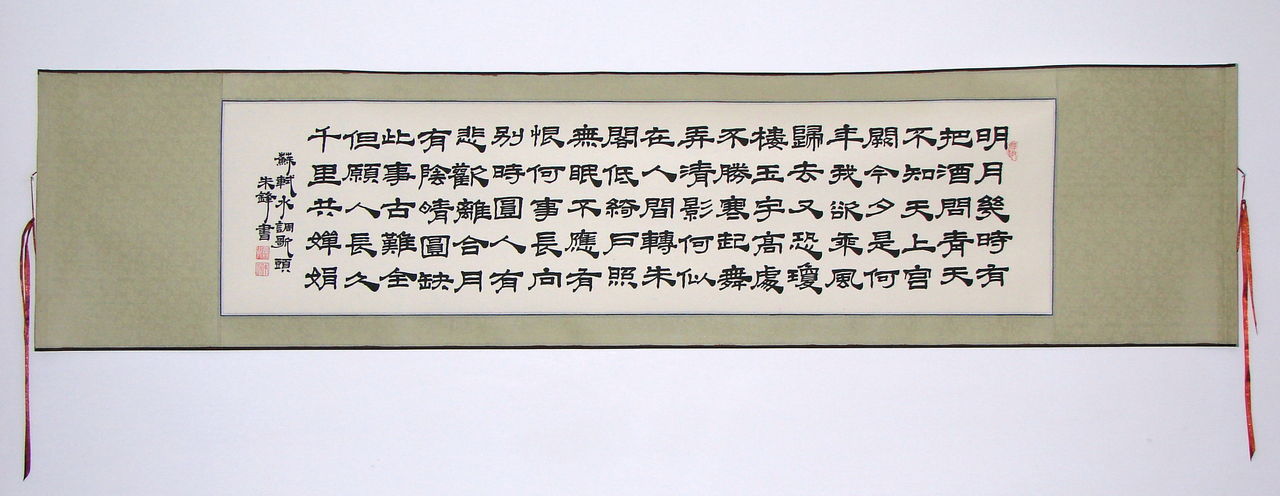 明月幾時有
把酒問青天
不知天上宮
闕今夕是何
年我欲乘風
歸去又恐瓊
樓玉宇高處
不勝寒起舞
弄清影何似
在人間轉朱
閣低綺戶照
無眠不應有
恨何事長向
别時圓人有
悲歡離合月
有陰晴圓缺
此事古難全
但願人長久
千里共嬋娟
蘇軾水調歌頭
朱鋒書